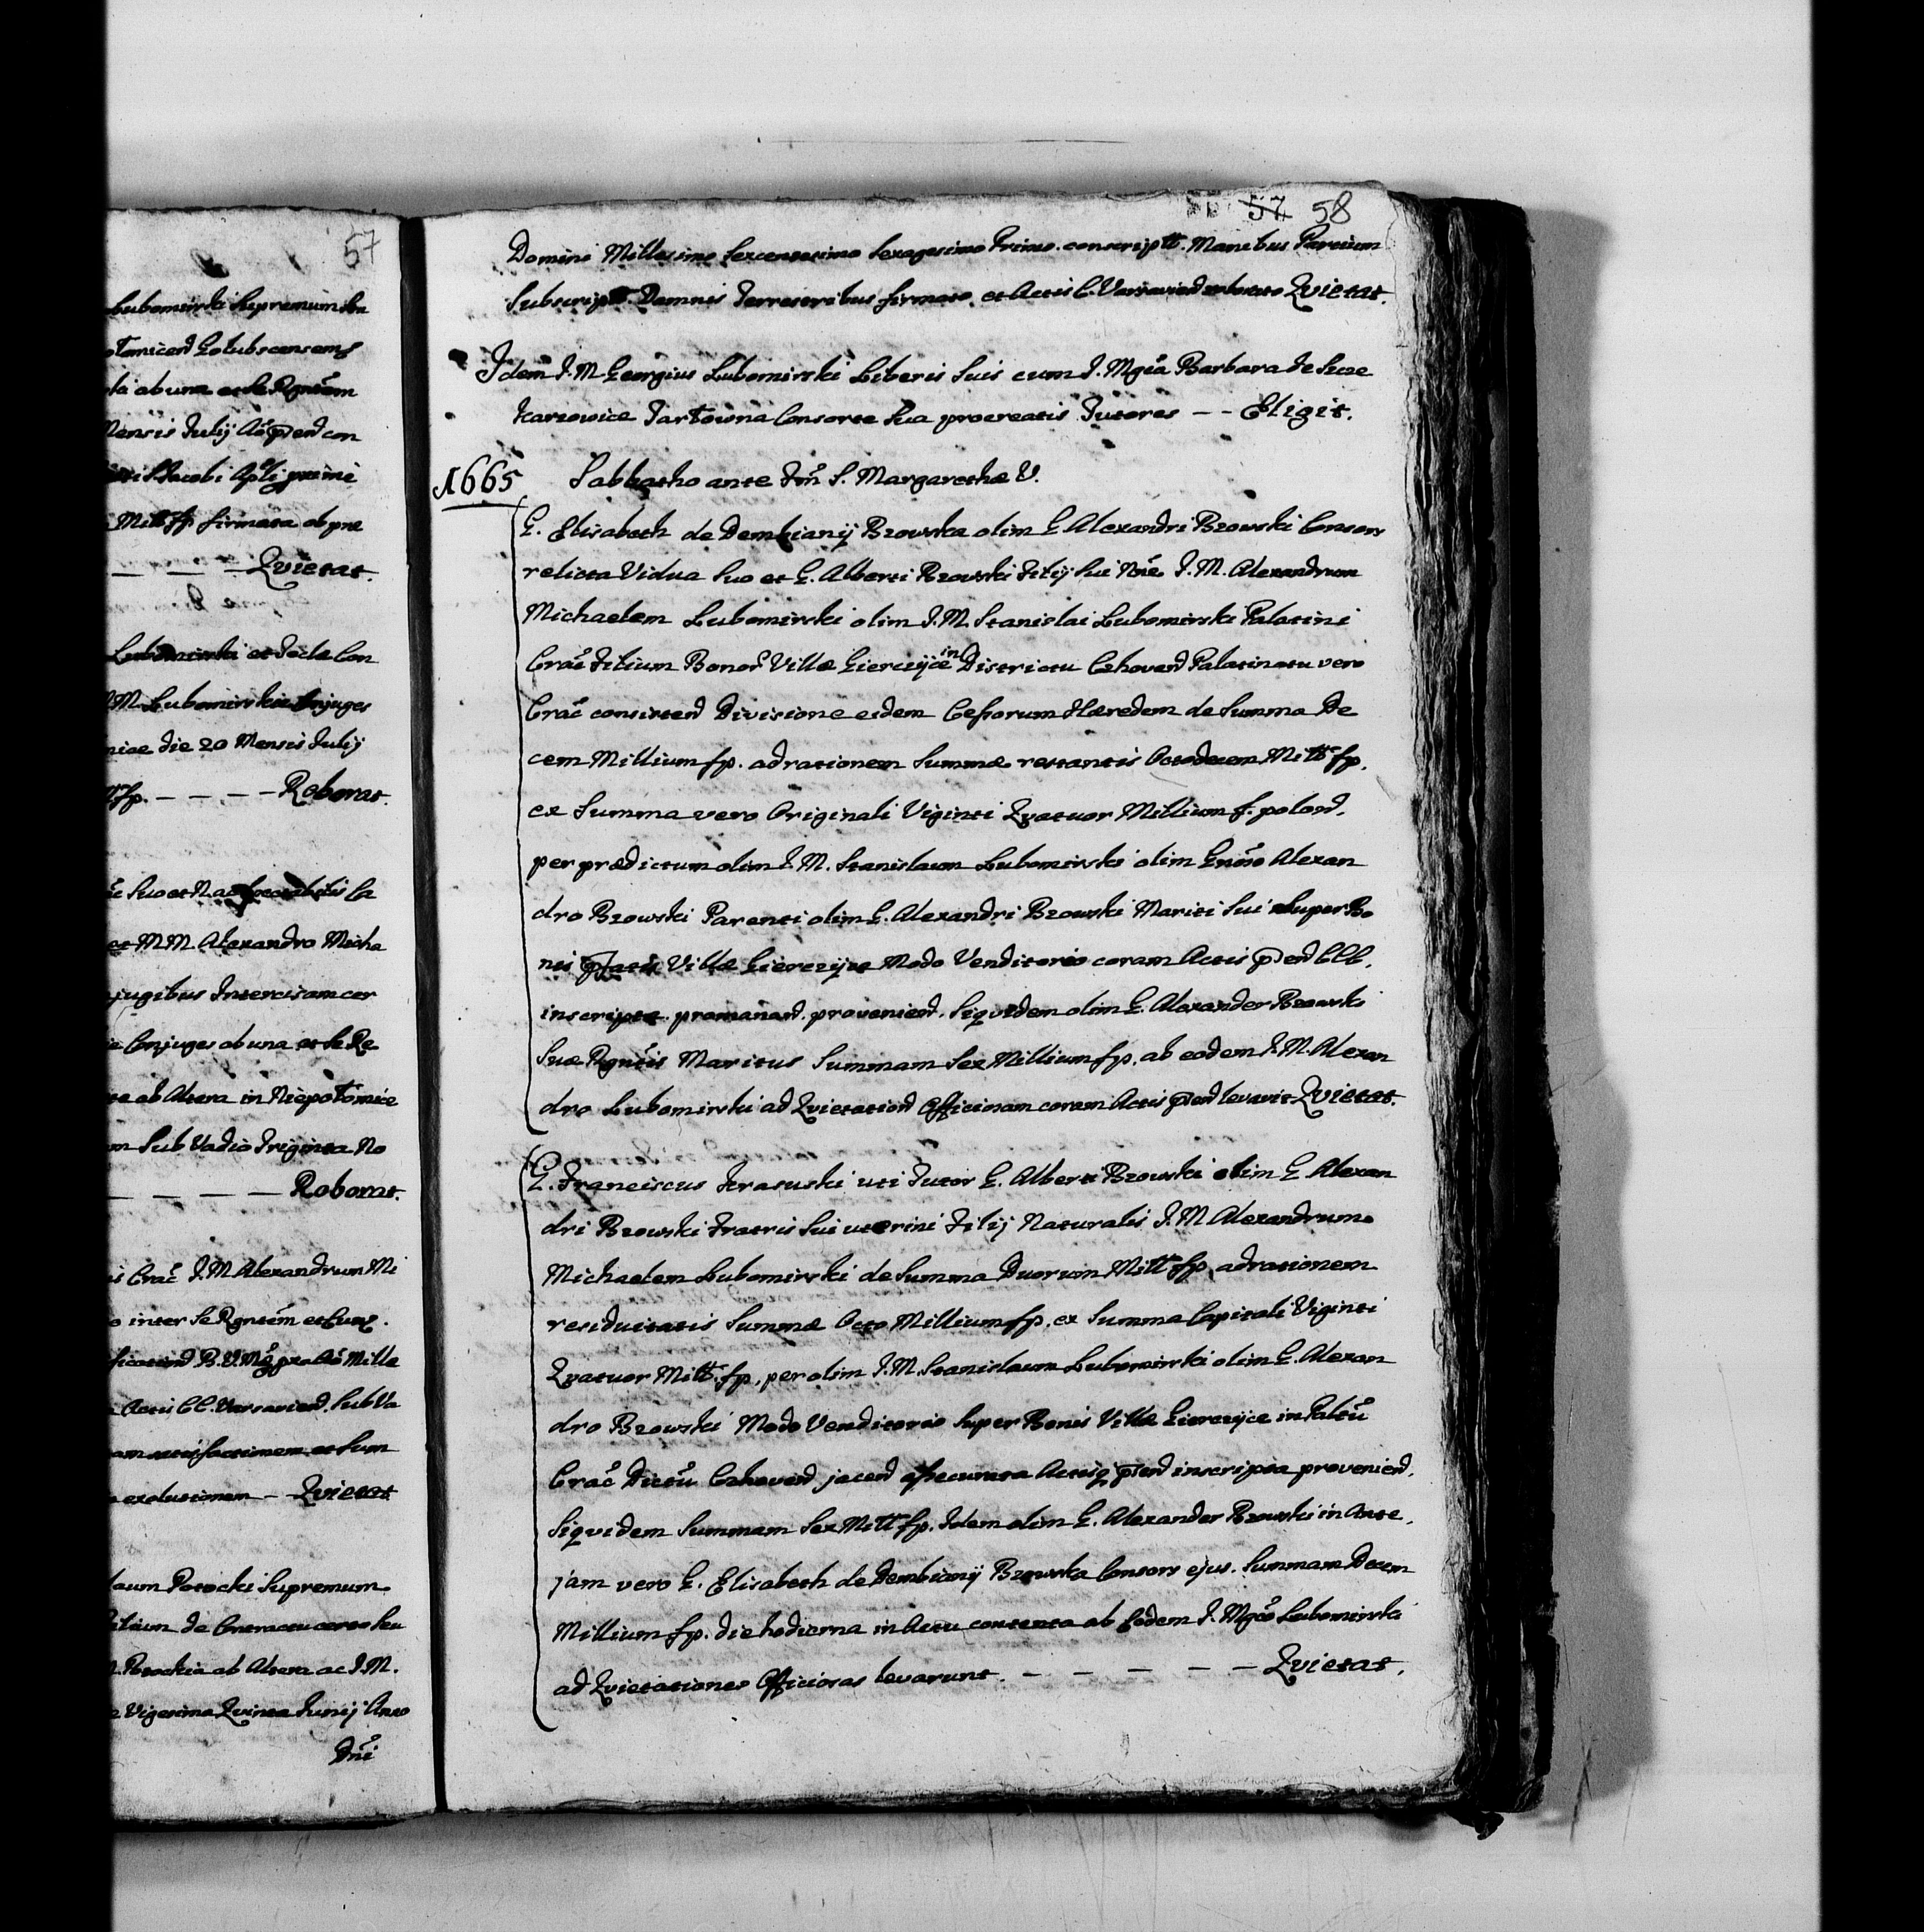 57
Lubomirski Supremum
Golubscensem
ab una et se Rgntem
Mensis Julij
S Jacobi Apli
Mill fp. firmata ab
— — — Qvietat.
Lubomirski et
M Lubomirskie Conjuges
die 20 Mensis Julij
fp. — — — — Roborat.
suo et
et M M Alexandro Micha
jugibus Intercisam cer
Conjuges ab una et se Re
ab Altera in Niepołomice
Sub Vadio Triginta No
— — — — Roborat.
Crac̃ J. M Alexandrum Mi
inter Se Rgntem et
Mille
Actis CC. Varsaviend. Sub Va
et Sum
exolutionem — Qvietat
Potocki Supremum
de Contractu certo seu
ab Altera ac J. M.
Vigesima Qvinta Junij Anno
Dni
57 58
Domini Millesimo Sexcentesimo Sexagesimo Primo conscriptt. Manibus Partium
Subscript. Damnis Terrestribus firmato et Actis C. Varsaviend roborato Qvietat.
Idem J. M Georgius Lubomirski Liberis Suis cum J. Mgca Barbara de
Tarłowna Consorte Sua procreatis Tutores — — Eligit.
1665 Sabbatho ante Fm̃ S. Margarethæ V.
G. Elisabeth de Dembiany Bzowska olim G Alexandri Bzowski Consors
relicta Vidua Suo et G. Alberti Bzowski Filij Sui Noĩe J. M. Alexandrum
Michaelem Lubomirski olim J. M. Stanislai Lubomirski Palatini
Crac̃ Filium Bonor̃ Villæ Gierczyce in Districtu Czhoviend Palatinatu vero
Crac̃ consistend Divisione eidem Cessorum Hæredem de Summa De
cem Millium fp. ad rationem Summæ restantis Octodecem Mill fp.
ex Summa vero Originali Viginti Qvatuor Millium f. polond.
per prædictum olim J. M. Stanislaum Lubomirski olim Gnõso Alexan
dro Bzowski Parenti olim G. Alexandri Bzowski Mariti Sui Super Bo
nis pfatis Villæ Gierczyce Modo Venditorio coram Actis pend CCC.
inscripta promanand. proveniend. Siqvidem olim G. Alexander Bzowski
Suæ Rgntis Maritus Summam Sex Millium fp. ab eodem J. M. Alexan
dro Lubomirski ad Qvietationem Officiosam coram Actis pend levavit Qvietat.
G. Franciscus Krasuski uti Tutor G. Alberti Bzowski olim G Alexan
dri Bzowski Fratris Sui uterini Filij Naturalis J. M Alexandrum
Michaelem Lubomirski de Summa Duorum Mill fp. ad rationem
residuitatis Summæ Octo Millium fp. ex Summa Capitali Viginti
Qvatuor Mill. fp. per olim J. M. Stanislaum Lubomirski olim G. Alexan
dro Bzowski Modo Venditorio Super Bonis Villæ Gierczyce in Paltũ
Crac̃ Dictũ Czhoviend jacend assecurata Actisq pend inscripta proveniend.
Siqvidem Summam Sex Mill fp. Idem olim G. Alexander Bzowski in Ante,
jam vero G. Elisabeth de Dembiany Bzowska Consors ejus. Summam Decem
Millium fp. die hodierna in Actu contenta ab Eodem J. Mgco Lubomirski
ad Qvietationes Officiosas levarunt. — — — — — Qvietat.